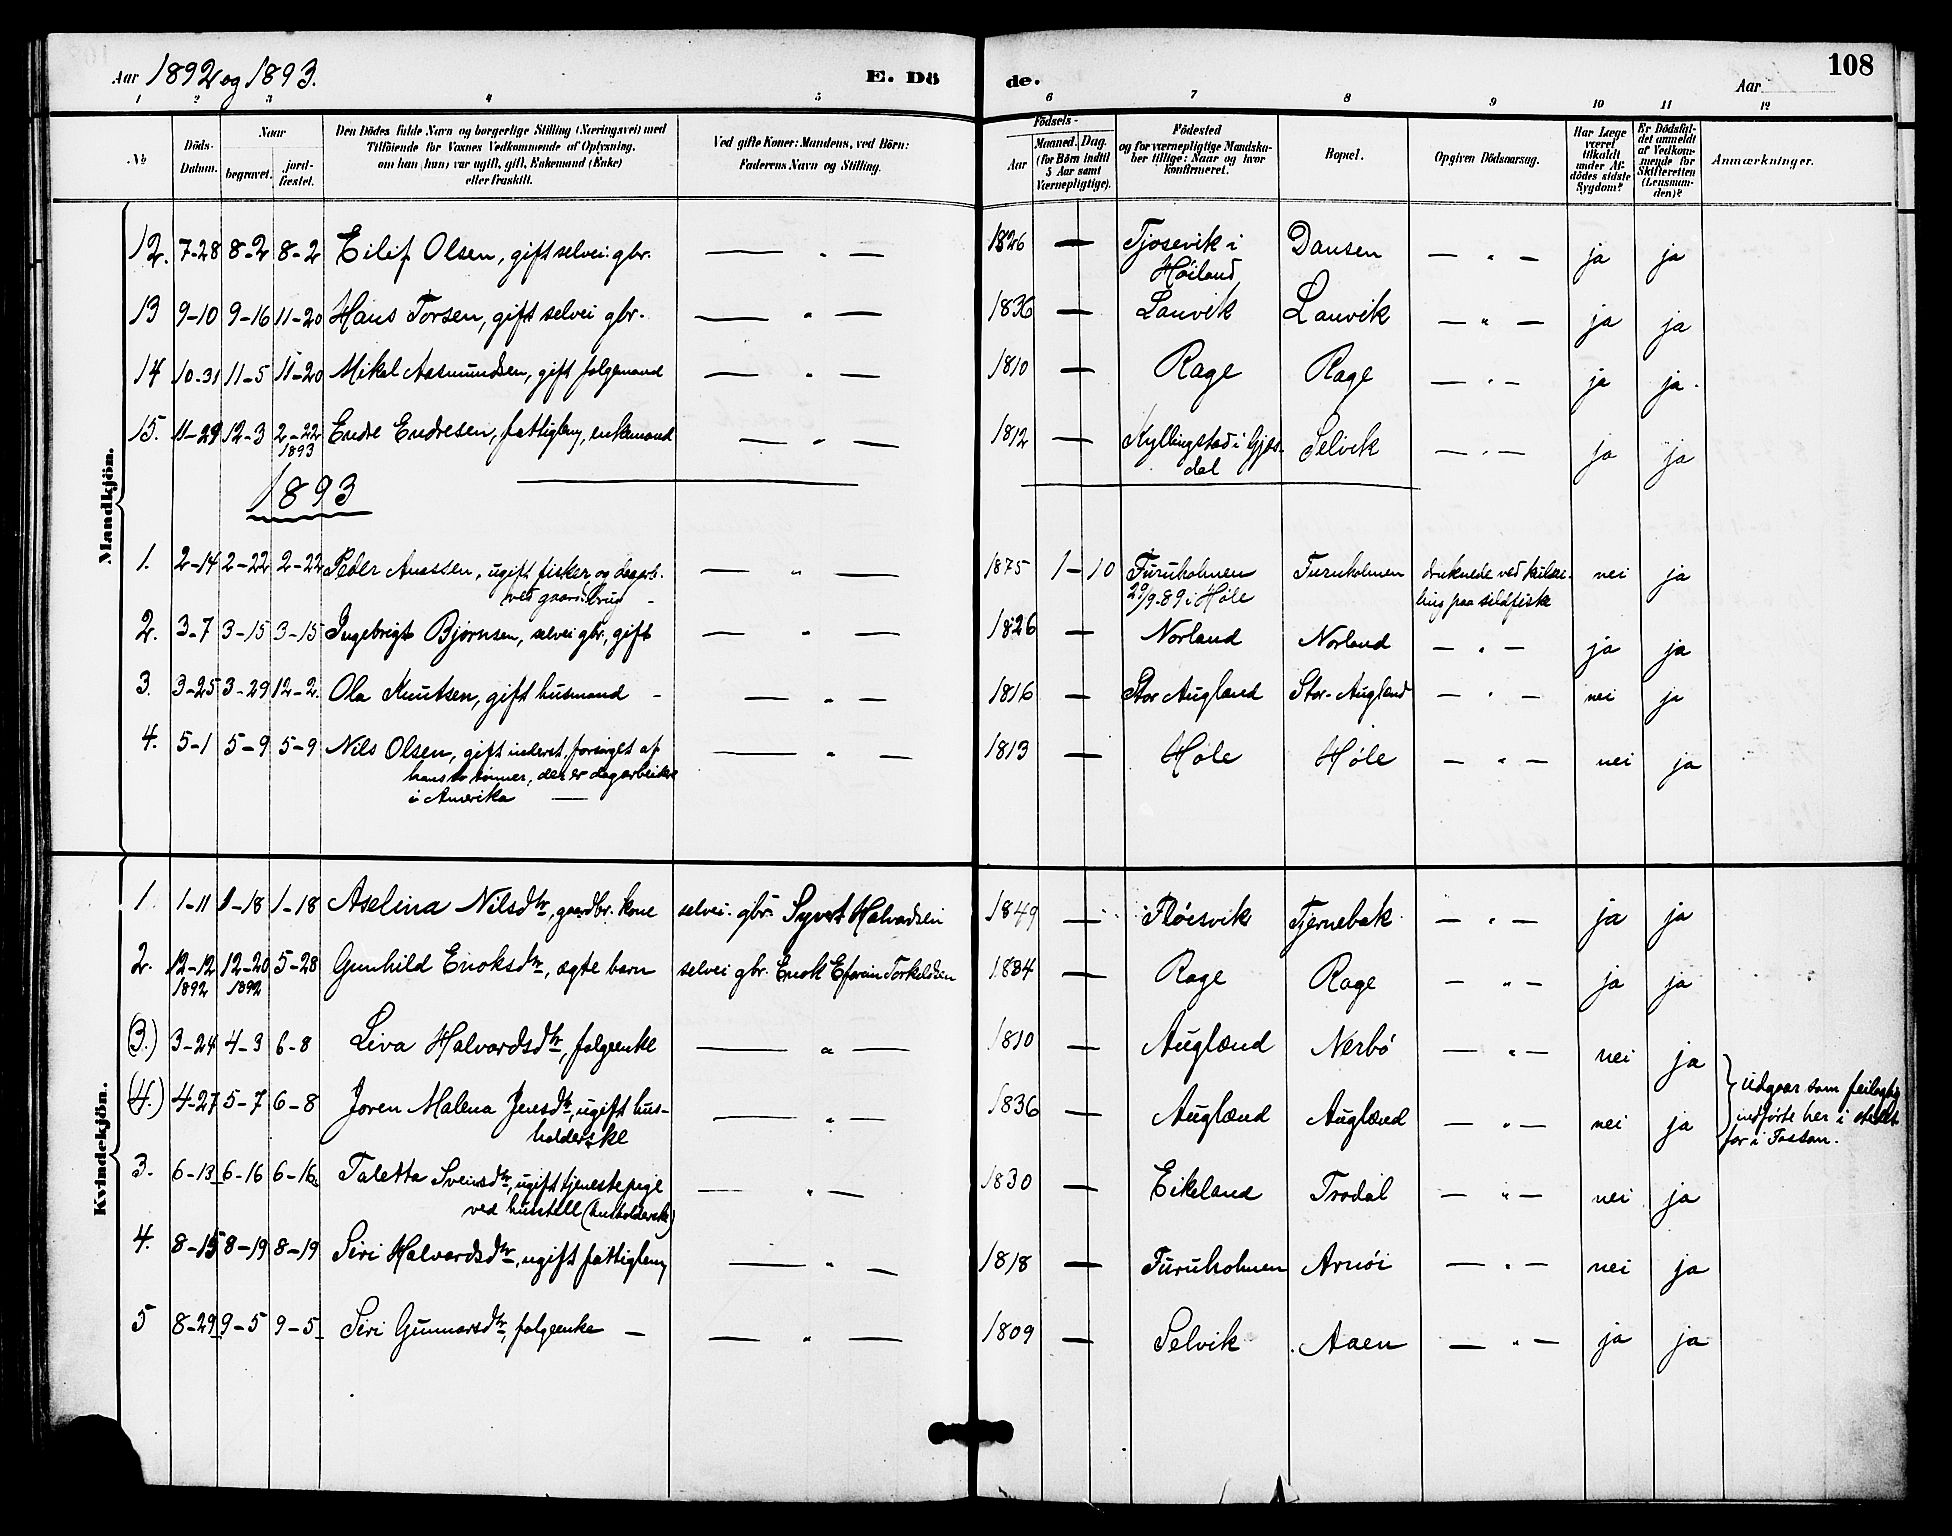 Aar 1892 og 1893. E. Dö de. Aar 108
1 2 3 4 5 6 7 8 9 10 11 12
No
Döds-Datum.
Naar begravet. jordfæstet.
Den Dödes fulde Navn og borgerlige Stilling (Næringsvei) med
Tilföiende for Voxnes Vedkommende af Oplysning,
om han (hun) var ugift, gift, Enkemand (Enke)
eller fraskilt.
Ved gifte Koner: Mandens, ved Börn:
Faderens Navn og Stilling.
Födsels-
Aar Maaned. Dag.
(for Börn indtil
5 Aar samt
Værnepligtige).
Födested
og for værnepligtige Mandskaber tillige: Naar og hvor
konfirmeret.
Bopæl.
Opgiven Dödsaarsag.
Har Læge
været
tilkaldt
under Afdödes sidste
Sygdom?
Er Dödsfaldet anmeldt
af Vedkommende for
Skifteretten
(Lensmanden)?
Anmærkninger.
Mandkjön.
12. 7-28 8-2 8-2 Eilif Olsen, gift selvei. gbr. — " — 1826 — Tjosevik i Höiland Dansen — " — ja ja
13 9-10 9-16 11-20 Hans Torsen, gift selvei gbr. — " — 1836 — Lauvik Lauvik — " — ja ja
14 10-31 11-5 11-20 Mikal Aasmundsen, gift folgemand — " — 1810 — Rage Rage — " — ja ja.
15. 11-29 12-3 2-22 1893 Endre Endresen, fattiglem, enkemand — " — 1812 — Kyllingstad i Gjesdal Selvik — " — ja ja
1893
1. 2-14 2-22 2-22 Peder Anassen, ugift fisker og dagarb. ved gaardsbrug — " — 1875 1-10 Furuholmen 29/9-89 i Höle Furuholmen druknede ved kulseling paa sildfiske nei ja
2. 3-7 3-15 3-15 Ingebrigt Björnsen, selvei gbr., gift — " — 1826 — Norland Norland — " — ja ja
3. 3-25 3-29 12-2 Ola Knutsen, gift husmand — — " — 1816 — Stor Augland Stor-Augland — " — nei ja
4. 5-1 5-9 5-9 Nils Olsen, gift inderst, forsörget af
hans sönner, der er dagarbeidere
i Amerika — — " — 1813 — Höle Höle — " — nei ja
Kvindekjön.
1. 1-11 1-18 1-18 Aselina Nilsdtr, gaardbr. kone selvei. gbr. Syvert Halvardsen 1849 — Flöisvik Tjernebak — " — ja ja
2. 12-12 1892 12-20 1892 5-28 Gunhild Enoksdtr, ægte barn selvei gbr. Enok Efraim Torkeldsen 1884 — Rage Rage — " — ja ja
(3.) 3-24 4-3 6-8 Liva Halvardsdtr, folgeenke — " — 1810 — Auglænd Nerbö — " — nei ja
(4.) 4-27 5-7 6-8 Joren Malena Jensdtr, ugift husholderske — " — 1836 — Auglænd Auglænd — " — nei ja
udgaar som feilagtig
indförte her i stedet
for i Fossan.
3. 6-13 6-16 6-16 Taletta Sveinsdtr, ugift tjenestepige
ved husstell (husholderske) — " — 1830 — Eikeland Trodal — " — nei ja
4. 8-15 8-19 8-19 Siri Halvardsdtr, ugift fattiglem — " — 1818 — Furuholmen Arnöi — " — nei ja
5 8-29 9-5 9-5 Siri Gunnarsdtr, folgeenke — — " — 1809 — Selvik Aaen — " — ja ja